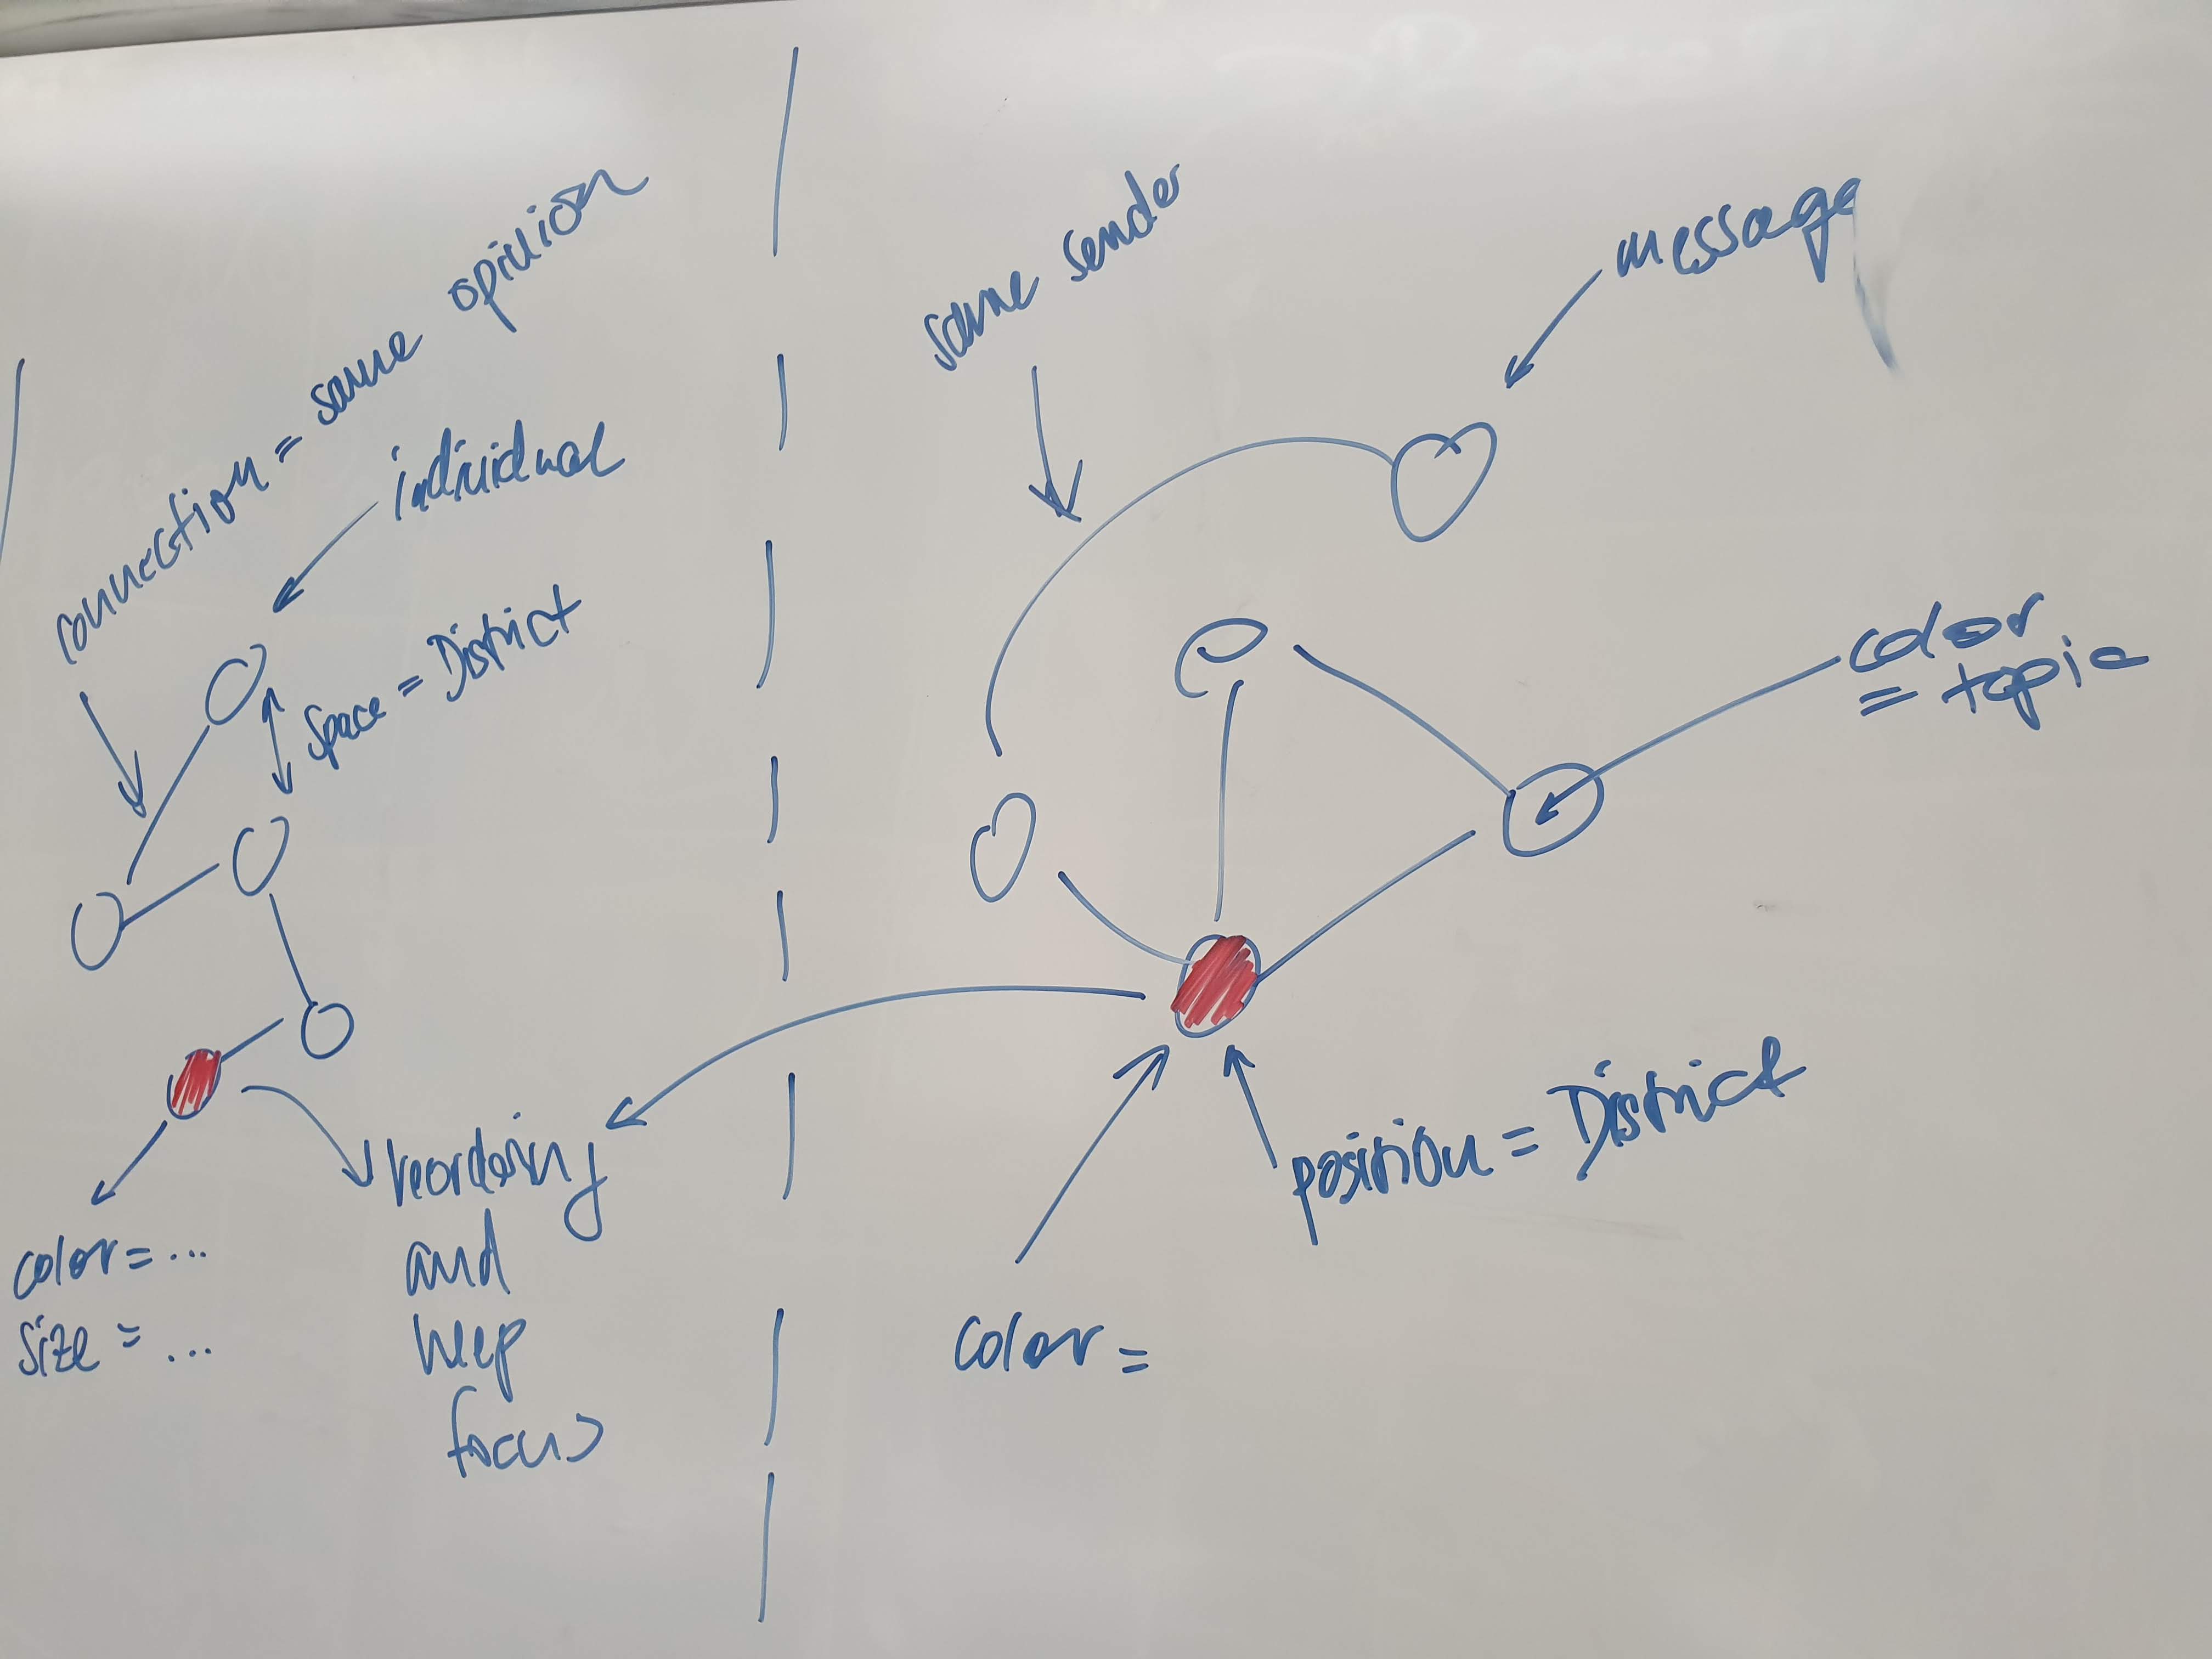 connection = same opinion
individual
space = District
color = ...
size = ...
reordering
and
keep
focus
same sender
message
color
= topic
position = District
color =